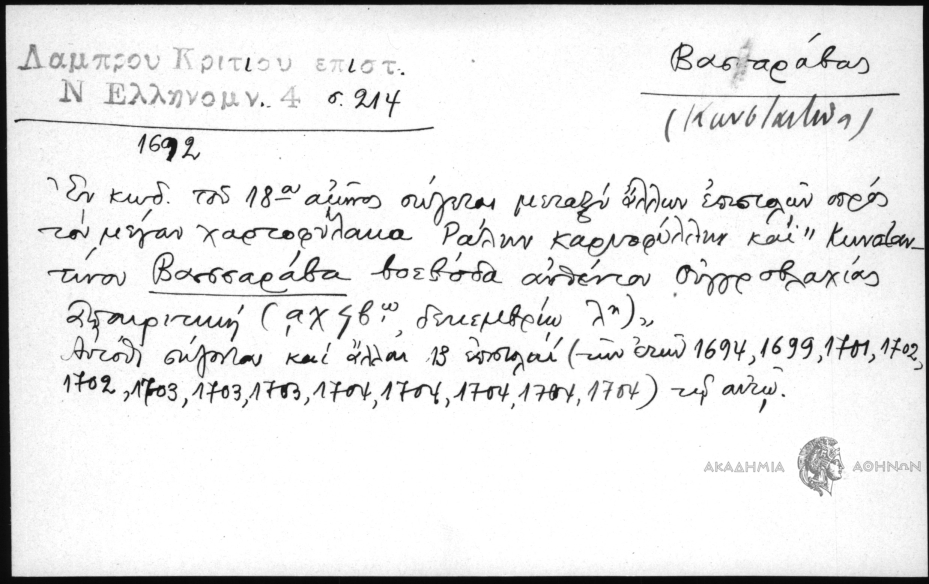 Λαμπρου Κριτιου επιστ.
Ν Ελληνομν. 4 σ. 214
Βασσαράβας
(Κωνσταντῖνος)
1692
Ἐν κωδ. τοῦ 18ου αἰῶνος σῴζεται μεταξὺ ἄλλων ἐπιστολῶν πρὸς
τὸν μέγαν χαρτοφύλακα Ράλλην Καρυοφύλλην καὶ "Κωνσταν-
τίνου Βασσαράβα βοεβόδα αὐθέντου Οὐγγροβλαχίας
(͵αχϟβῳ, δεκεμβρίῳ λῃ)„
Αὐτόθι σῴζονται καὶ ἄλλαι 13 ἐπιστολαί (τῶν ἐτῶν 1694, 1699, 1701, 1702,
1702, 1703, 1703, 1703, 1704, 1704, 1704, 1704, 1704) τοῦ αὐτοῦ.
ΑΚΑΔΗΜΙΑ ΑΘΗΝΩΝ